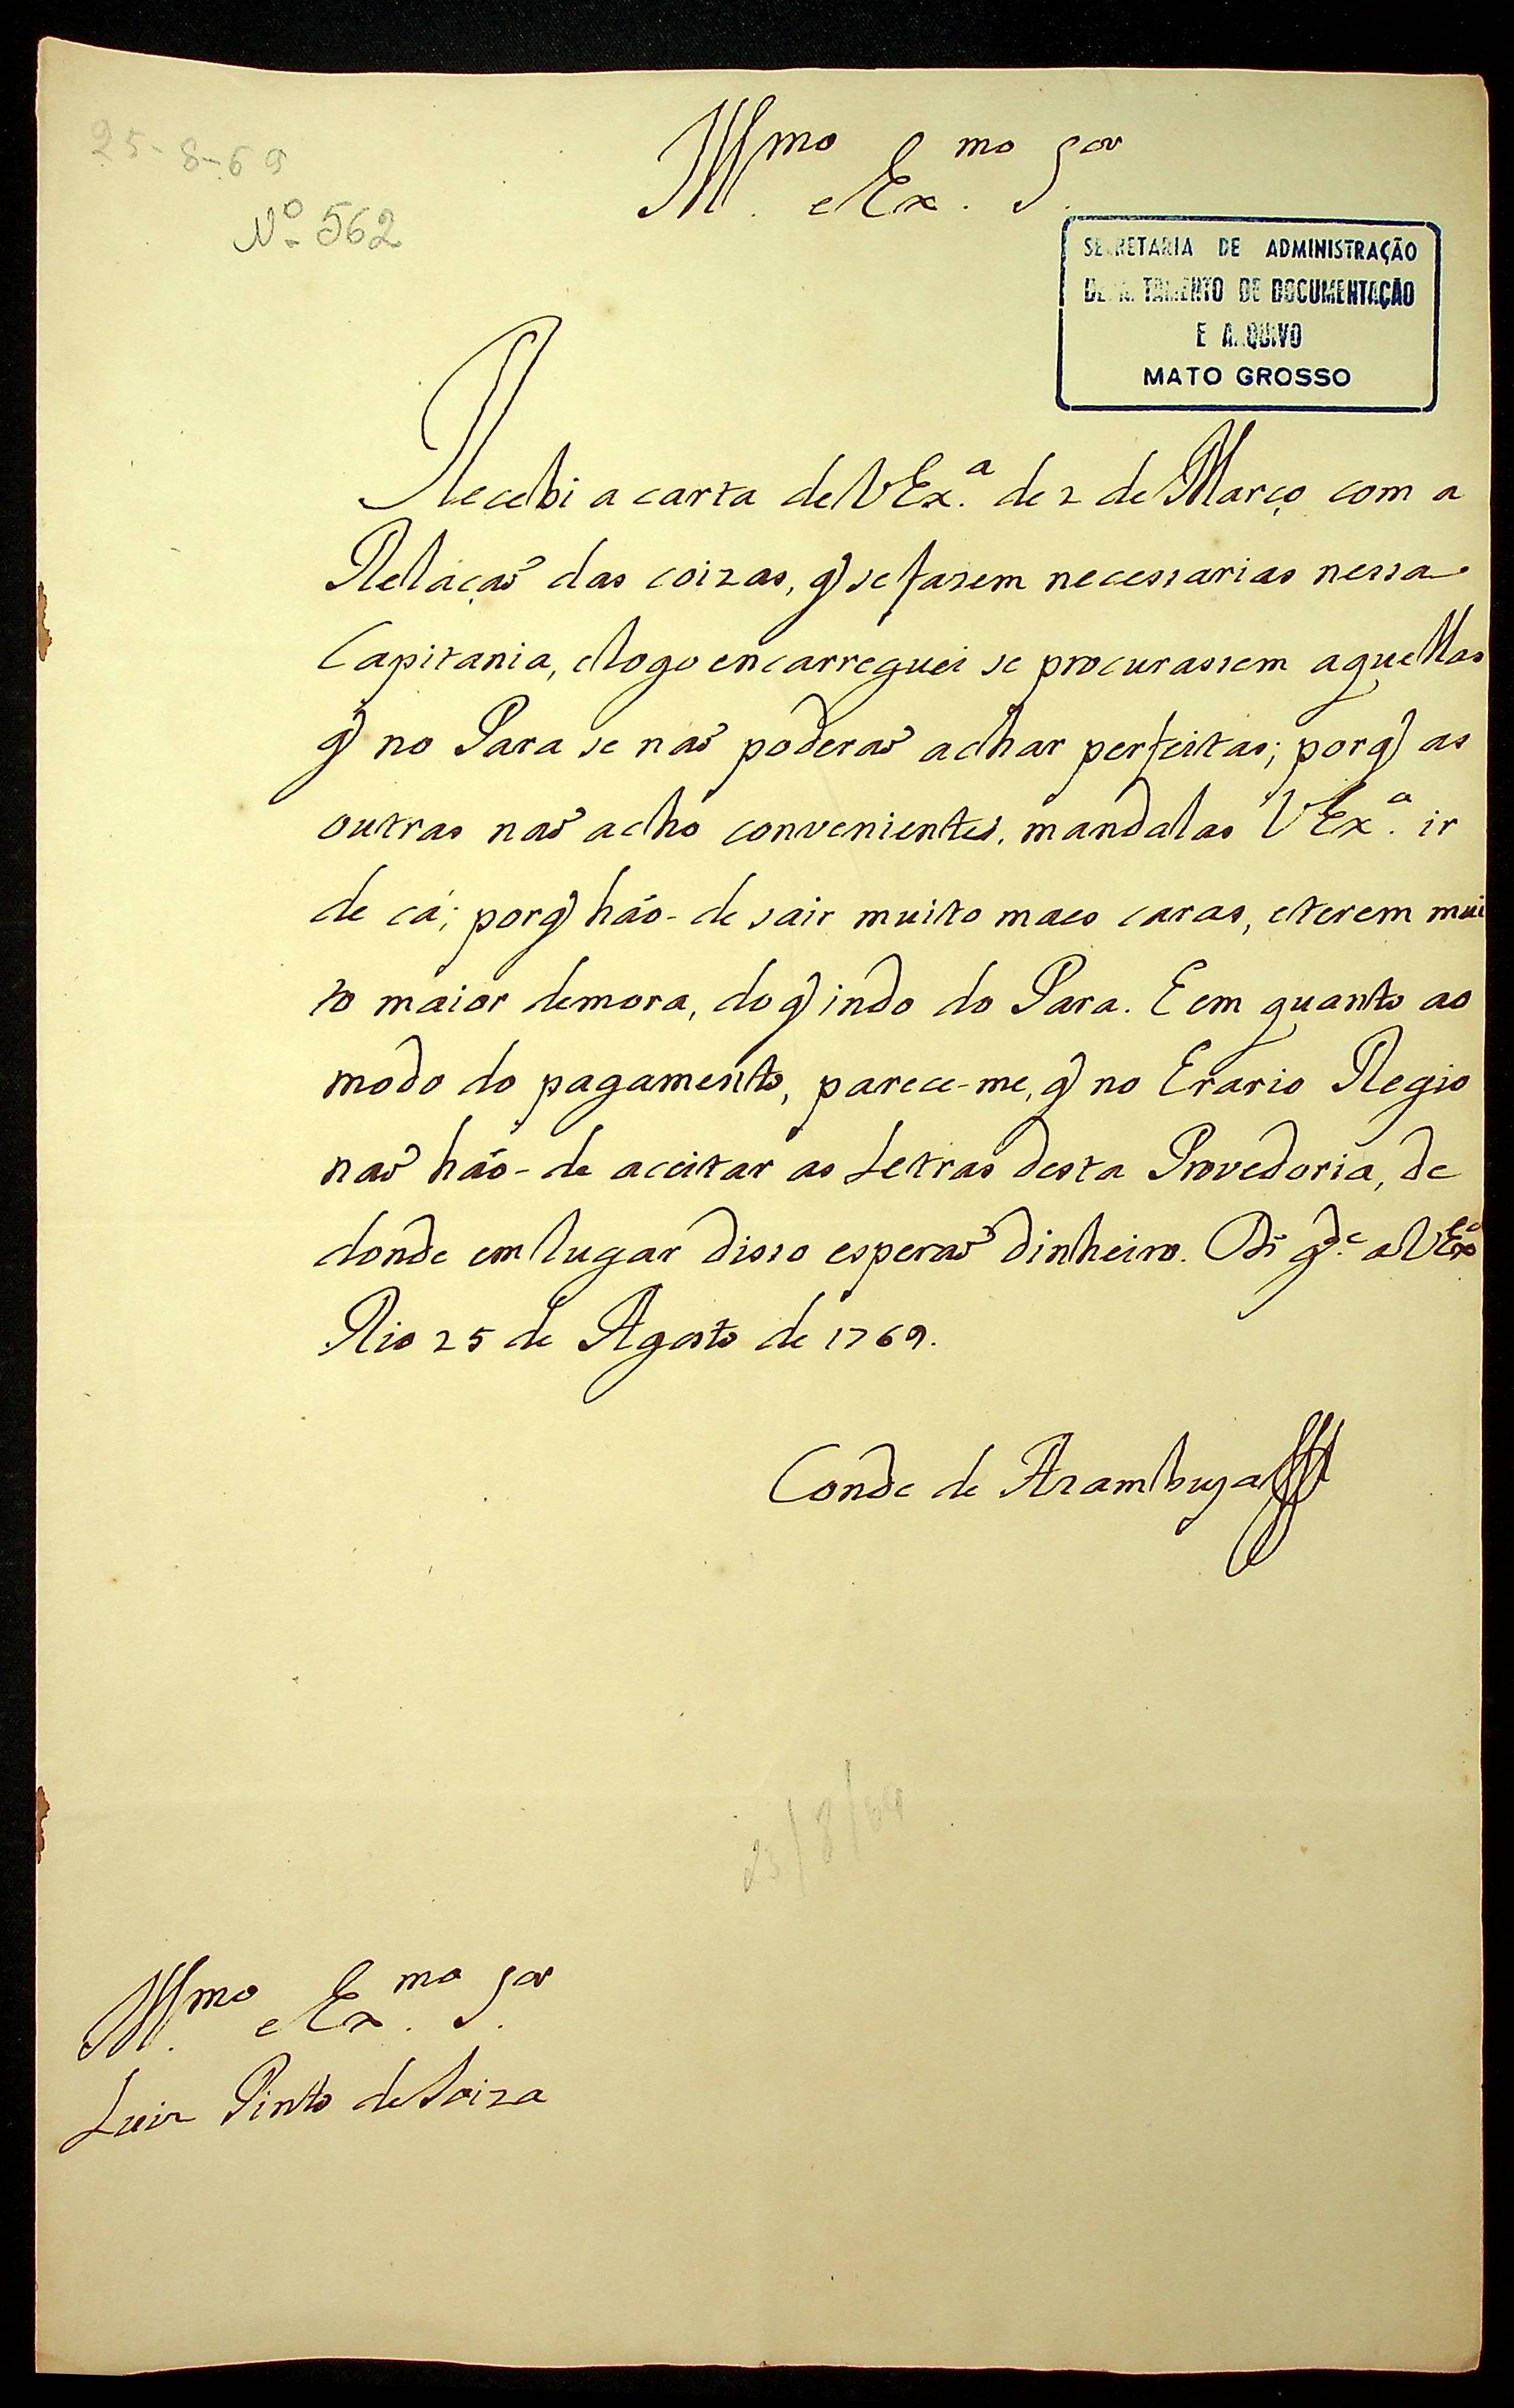 25-8-69
Nº 562
Illmo. e Exmo. Sor.
SECRETARIA DE ADMINISTRAÇÃO
DEPARTAMENTO DE DOCUMENTAÇÃO
E ARQUIVO
MATO GROSSO
Recebi a carta de VExª. de 2 de Março com a
Relaçaõ das coizas, q̃ se fazem necessarias nessa
Capitania, e logo encarreguei se procurassem aquellas
q̃ no Para se naõ poderaõ achar perfeitas; porq̃ as
outras naõ acho conveniente, mandalas VExª. ir
de cá; porq̃ háo-de sair muito maes caras, e terem mui
to maior demora, do q̃ indo do Para. E em quanto ao
modo do pagamento, parece-me, q̃ no Erario Regio
naõ háo-de aceitar as Letras desta Provedoria, de
donde em lugar disso esperaõ dinheiro. Ds̃ gde. a VExª
Rio 25 de Agosto de 1769.
Conde de Azambuja
25/8/69
Illmo. e Exmo. Sor.
Luiz Pinto de Soiza